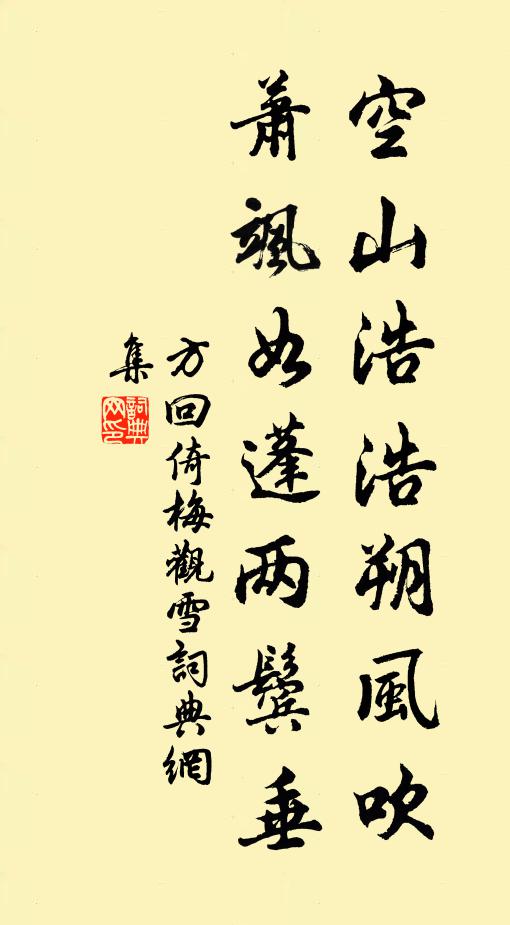 空山浩浩朔風吹
蕭颯如蓬两鬓垂
方回倚梅觀雪詞典網
集
詞典
网印